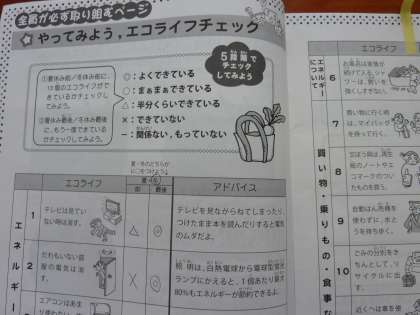 全員が必ず取り組むページ
やってみよう，エコライフチェック
①夏休み前／冬休み前に，
10個のエコライフがで
きているかチェックし
てみよう。
②夏休み最後／冬休み最後
に，もう一度できている
かチェックしてみよう。
◎：よくできている
○：まあまあできている
△：半分くらいできている
×：できていない
－：関係ない，もっていない
5段階で
チェック
してみよう
夏・冬のどちらか
に○をつけよう
エコライフ
夏・冬
前
最後
アドバイス
エネルギー
1
テレビは見てい
ない時は消す。
△
◎
テレビを見ながらねてしまったり，
つけたまま本を読んだりすると電気
のムダだよ。
2
だれもいない部
屋の電気は消
す。
×
◎
照明は，白熱電球から電球型蛍光
ランプにかえると，1個あたり約
80％もエネルギーが節約できるよ。
エアコンはあま
エコライフ
エネルギー
について
6
お風呂は家族が
続けて入る。シャ
ワーは，勢いを
強くしすぎない。
買い物・乗りもの・食事な
7
買い物に行く時
は，マイバッグ
を持って行く。
8
文ぼう具は，再生
紙のノートやエ
コマークのつい
たものを買う。
9
自動はん売機を
使わずに，水と
うを持ち歩く。
10
ごみの分別をき
ちんとして，リ
サイクルに出
す。
近くへは車を使